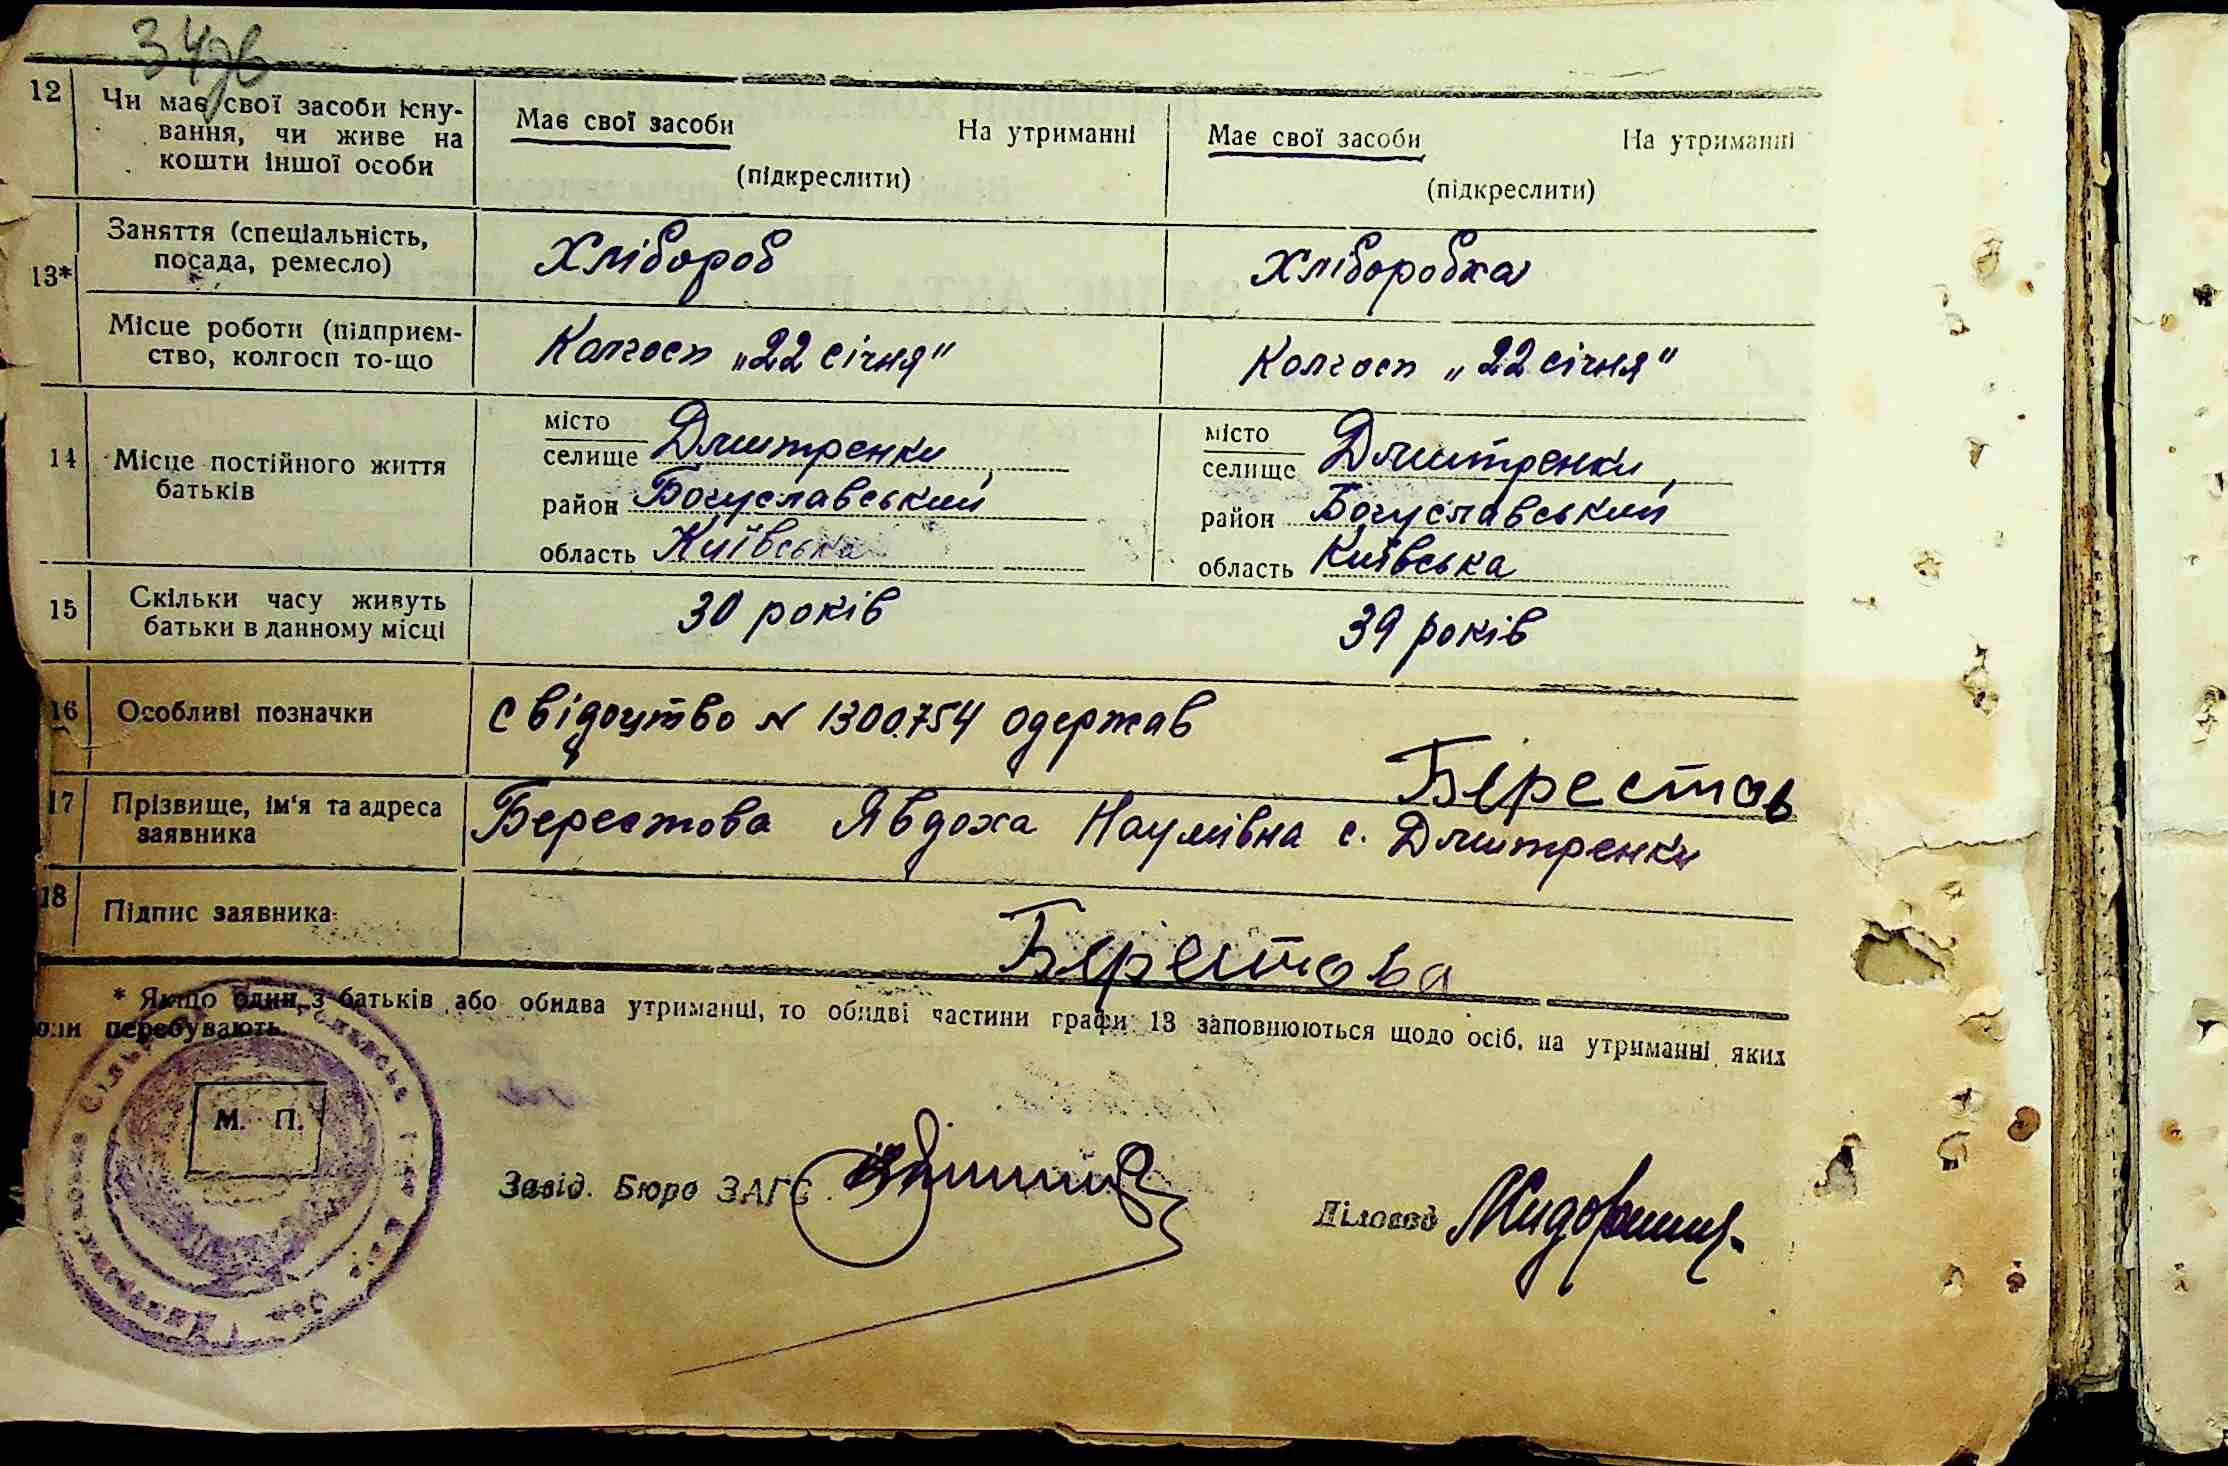 34 зв
12
Чи має свої засоби існу-
вання, чи живе на
кошти іншої особи
Має свої засоби На утриманні
(підкреслити)
Має свої засоби На утриманні
(підкреслити)
13*
Заняття (спеціальність,
посада, ремесло)
Хлібороб
Хлібаробка
Місце роботи (підприєм-
ство, колгосп то-що
Колгосп „22 січня"
Колгосп „22 січня"
14
Місце постійного життя
батьків
місто
селище Дмитренки,
район Богуславський
область Київська
місто
селище Дмитренки,
район Богуславський
область Київська
15
Скільки часу живуть
батьки в данному місці
30 років
39 років
16
Особливі позначки
свідоцтво N 1300754 одержав
Берестов
17
Прізвище, ім'я та адреса
заявника
Берестова Явдоха Наумівна с. Дмитренки
18
Підпис заявника:
Берестова
* Якщо один з батьків або обидва утриманці, то обидві частини графи 13 заповнюються щодо осіб, на утриманні яких
вони перебувають.
М. П.
Завід. Бюро ЗАГС
Діловод